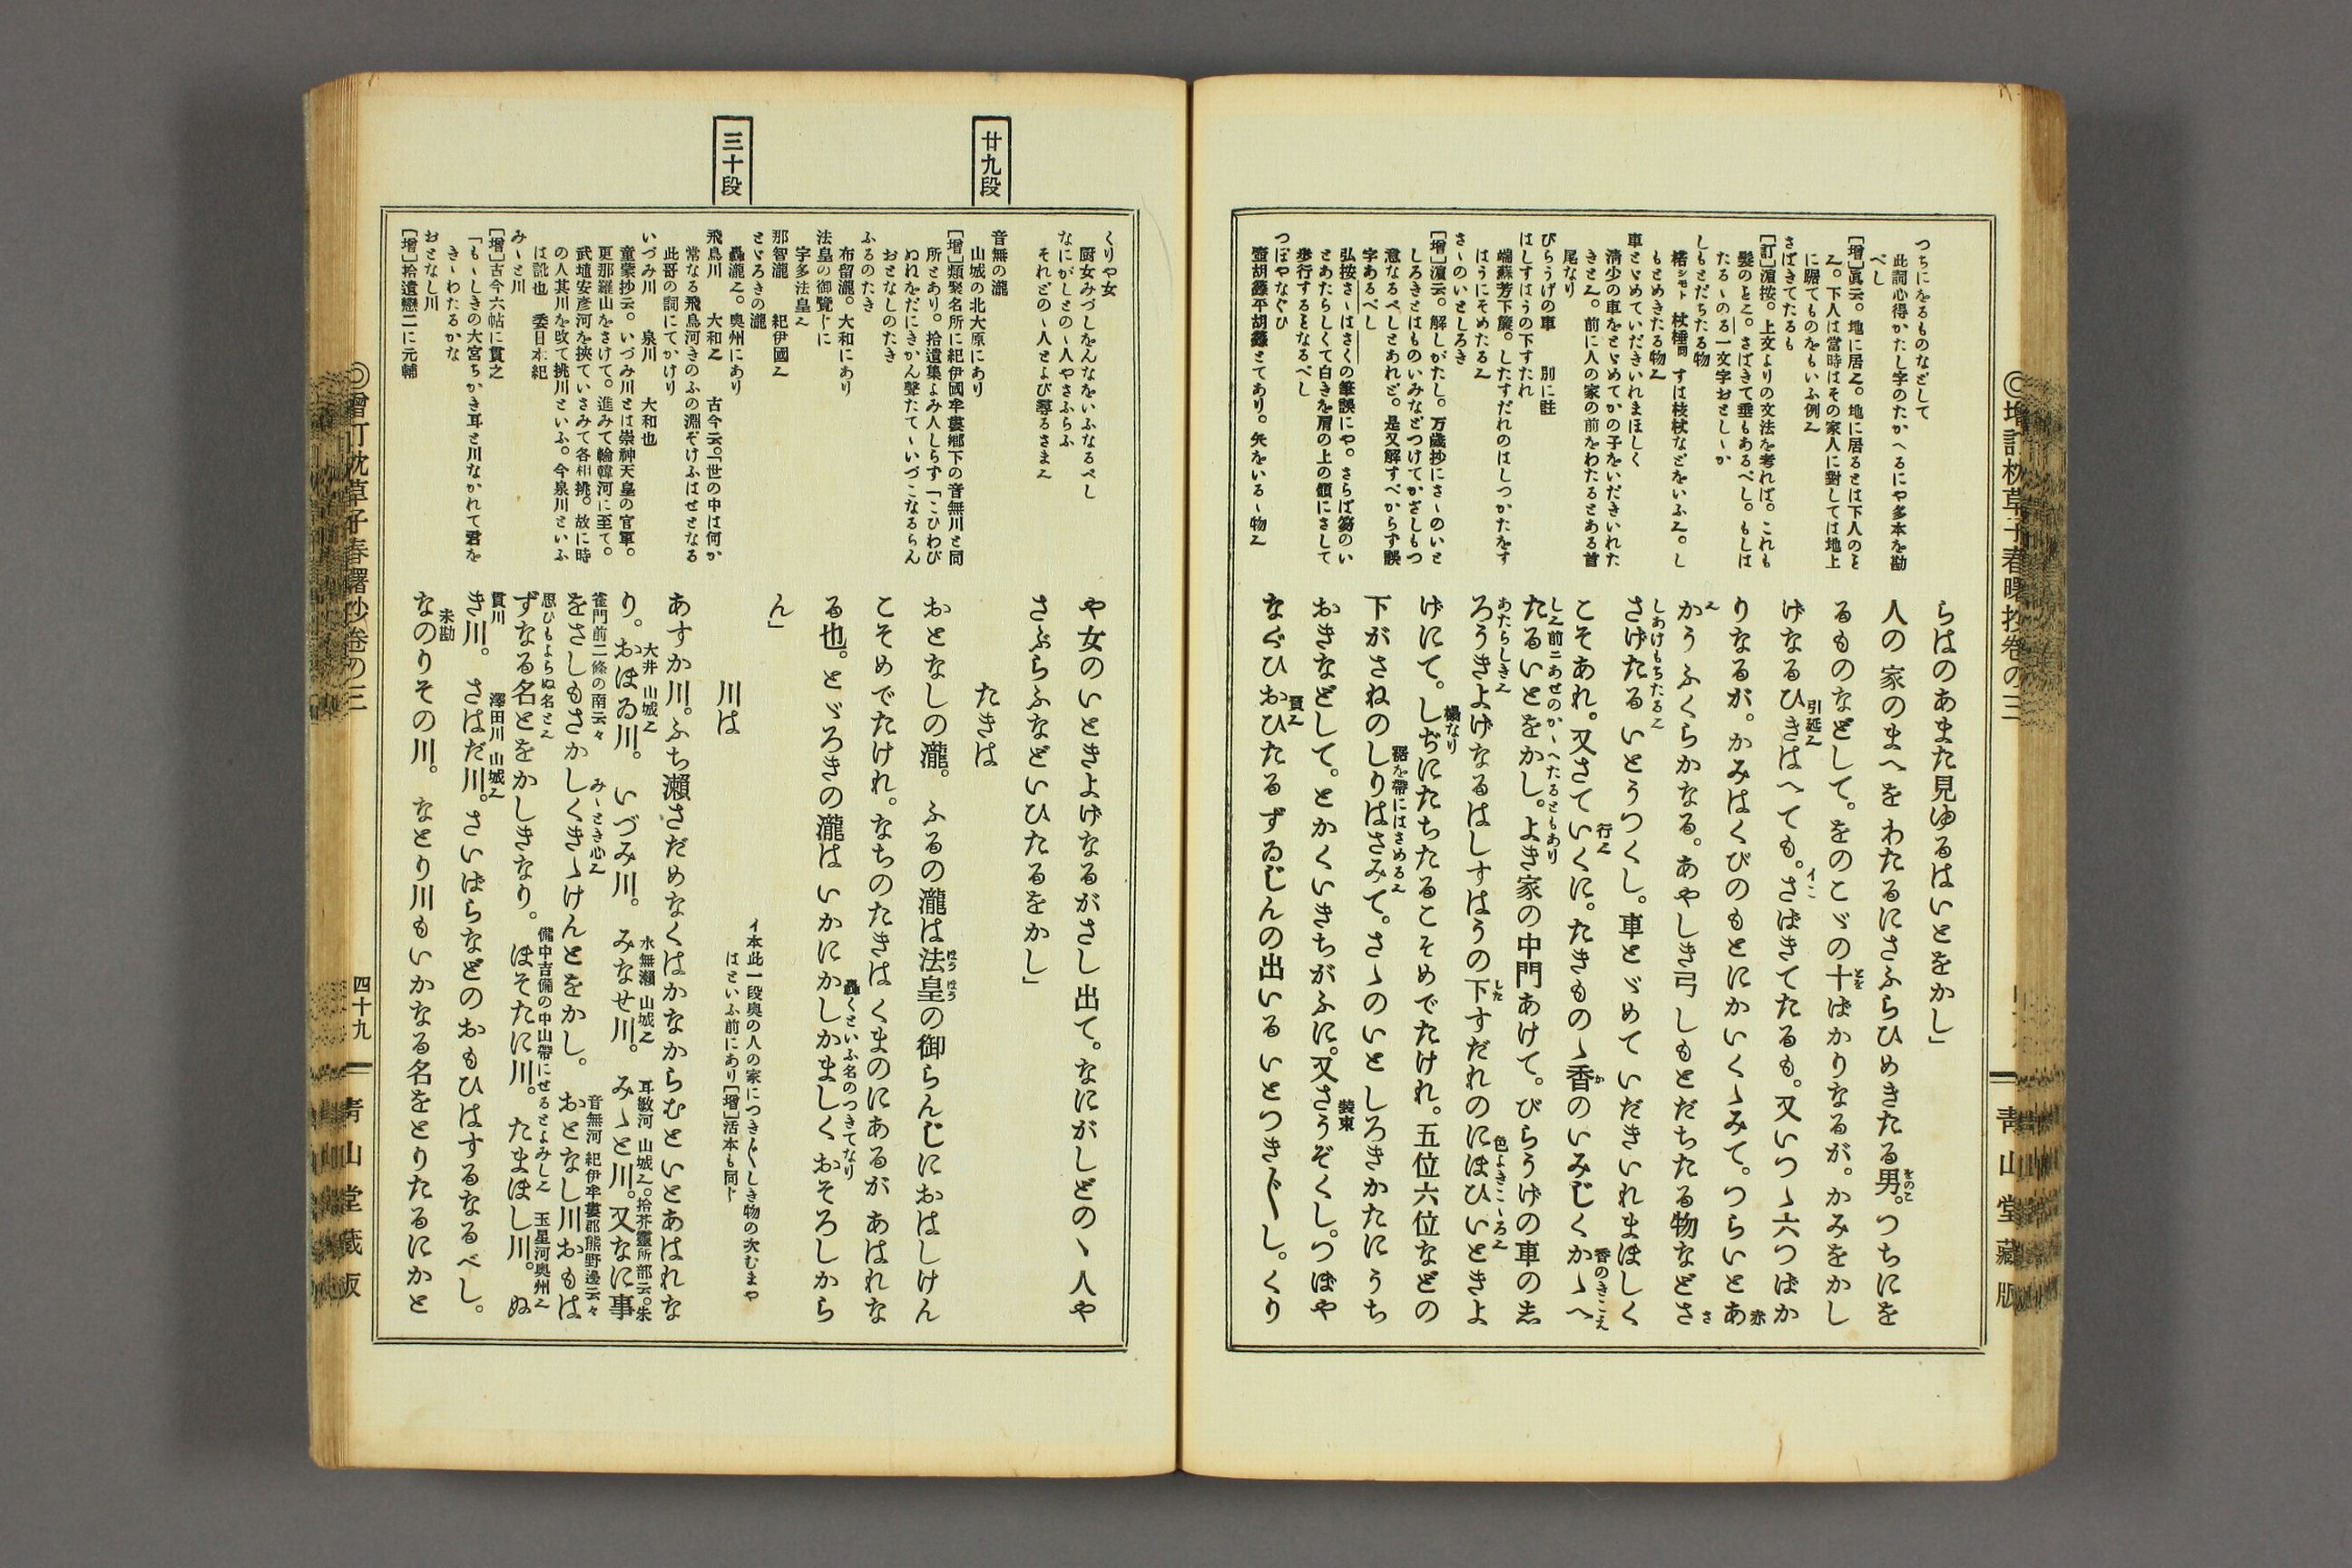 つちにをるものなどして
此詞心得かたし字のたかへるにや多本を勘
べし
[增]眞云。地に居之。地に居るとは下人のと
之。下人は當時はその家人に對しては地上
に踞てものをもいふ例之
さばきてたるも
[訂]濵按。上文よりの文法を考れば。これも
髮のと之。さばきて垂もあるべし。もしは
たるゝのる一文字おとしゝか
しもとだちたる物
楉シモト 杖棰同 すは枝杖などをいふ之。し
もとめきたる物之
車とゞめていだきいれまほしく
清少の車をとゞめてかの子をいだきいれた
きと之。前に人の家の前をわたるとある首
尾なり
びらうげの車 別に註
はしすはうの下すたれ
端蘇芳下簾。したすだれのはしつかたをす
はうにそめたる之
さゝのいとしろき
[增]濵云。解しがたし。万歳抄にさゝのいと
しろきとはものいみなどつけてかざしもつ
意なるべしとあれど。是又解すべからず誤
字あるべし
弘按さゝはさくの筆誤にや。さらば笏のい
とあたらしくて白きを肩の上の領にさして
歩行するとなるべし
つぼやなぐひ
壺胡籙平胡籙とてあり。矢をいるゝ物之
らはのあまた見ゆるはいとをかし」
人の家のまへをわたるにさふらひめきたる男をのこ。つちにを
るものなどして。をのこゞの十とをばかりなるが。かみをかし
げなるひきはへても。さばきてたるも。又いつゝ六つばか
引延之 イこ
りなるが。かみはくびのもとにかいくゝみて。つらいとあ
赤
かうふくらかなる。あやしき弓しもとだちたる物などさ
さ
さげたるいとうつくし。車とゞめていだきいれまほしく
しあけもちたる之
こそあれ。又さていくに。たきものゝ香かのいみじくかゝへ
行之 香のきこえ
たるいとをかし。よき家の中門あけて。びらうげの車の志
し之前ニあせのかゝへたるともあり
ろうきよげなるはしすはうの下したすだれのにほひいときよ
あたらしき之 色よきこゝろ之
げにて。しぢにたちたるこそめでたけれ。五位六位などの
榻なり
下がさねのしりはさみて。さゝのいとしろきかたにうち
裾を帶にはさめる之
おきなどして。とかくいきちがふに。又さうぞくし。つぼや
裝束
なぐひおひたるずゐじんの出いるいとつき〴〵し。くり
負之
◎增訂枕草子春曙抄卷の三
靑山堂藏版
廿九段
三十段
くりや女
厨女みづしをんなをいふなるべし
なにがしとのゝ人やさふらふ
それどのゝ人とよび尋るさま之
音無の瀧
山城の北大原にあり
[增]類聚名所に紀伊國牟婁郷下の音無川と同
所とあり。拾遺集よみ人しらず「こひわび
ぬれをだにきかん聲たてゝいづこなるらん
おとなしのたき
ふるのたき
布留瀧。大和にあり
法皇の御覽じに
宇多法皇之
那智瀧 紀伊國之
とゞろきの瀧
轟瀧之。奥州にあり
飛鳥川 大和之 古今云。「世の中は何か
常なる飛鳥河きのふの淵ぞけふはせとなる
此哥の詞にてかけり
いづみ川 泉川 大和也
童蒙抄云。いづみ川とは崇神天皇の官軍。
更那羅山をさけて。進みて輪韓河に至て。
武埴安彦河を挾ていさみて各相挑。故に時
の人其川を改て挑川といふ。今泉川といふ
は訛也 委日本紀
みゝと川
[增]古今六帖に貫之
「もゝしきの大宮ちかき耳と川なかれて君を
きゝわたるかな
おとなし川
[增]拾遺戀二に元輔
や女のいときよげなるがさし出て。なにがしどのゝ人や
さぶらふなどいひたるをかし」
たきは
おとなしの瀧。ふるの瀧は法皇ほうほうの御らんじにおはしけん
こそめでたけれ。なちのたきはくまのにあるがあはれな
る也。とゞろきの瀧はいかにかしかましくおそろしから
轟くといふ名のつきてなり
ん」
イ本此一段奥の人の家につき〴〵しき物の次むまや
はといふ前にあり[增]活本も同じ
川は
あすか川。ふち瀬さだめなくはかなからむといとあはれな
り。おほゐ川。いづみ川。みなせ川。みゝと川。又なに事
大井 山城之 水無瀬 山城之 耳敏河 山城之。拾芥靈所部云。朱
をさしもさかしくきゝけんとをかし。おとなし川おもは
雀門前二條の南云々 みゝとき心之 音無河 紀伊牟婁郡熊野邊云々
ずなる名とをかしきなり。ほそたに川。たまほし川。ぬ
思ひもよらぬ名と之 備中吉備の中山帶にせるとよみし之 玉星河奥州之
き川。さはだ川。さいばらなどのおもひはするなるべし。
貫川 澤田川 山城之
なのりその川。なとり川もいかなる名をとりたるにかと
未勘
◎增訂枕草子春曙抄卷の三
四十九
靑山堂藏版